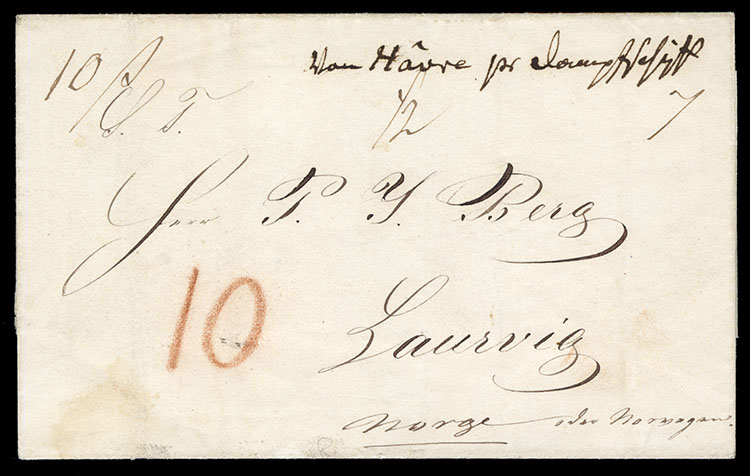 Von Hâvre pr Dampfschiff
10
S. T. 1/2 7
Herr P. Y. Berg
10
Laurvig
Norge oder Norwegen.